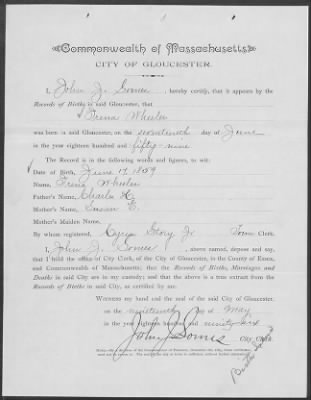 Commonwealth of Massachusetts
CITY OF GLOUCESTER.
I, John J. Somes, hereby certify, that it appears by the
Records of Births in said Gloucester, that
Irena Wheeler
was born in said Gloucester, on the seventeenth day of June
in the year eighteen hundred and fifty-nine
The Record is in the following words and figures, to wit:
Date of Birth, June 17, 1859
Name, Irena Wheeler
Father's Name, Charles H.
Mother's Name, Susan E.
Mother's Maiden Name,
By whom registered, Cyrus Story Jr Town Clerk.
I, John J. Somes, above named, depose and say,
that I hold the office of City Clerk, of the City of Gloucester, in the County of Essex,
and Commonwealth of Massachusetts; that the Records of Births, Marriages and
Deaths in said City are in my custody; and that the above is a true extract from the
Records of Births in said City, as certified by me.
WITNESS my hand and the seal of said City of Gloucester,
on the nineteenth day of May
in the year eighteen hundred and ninety-six
John J. Somes City Clerk.